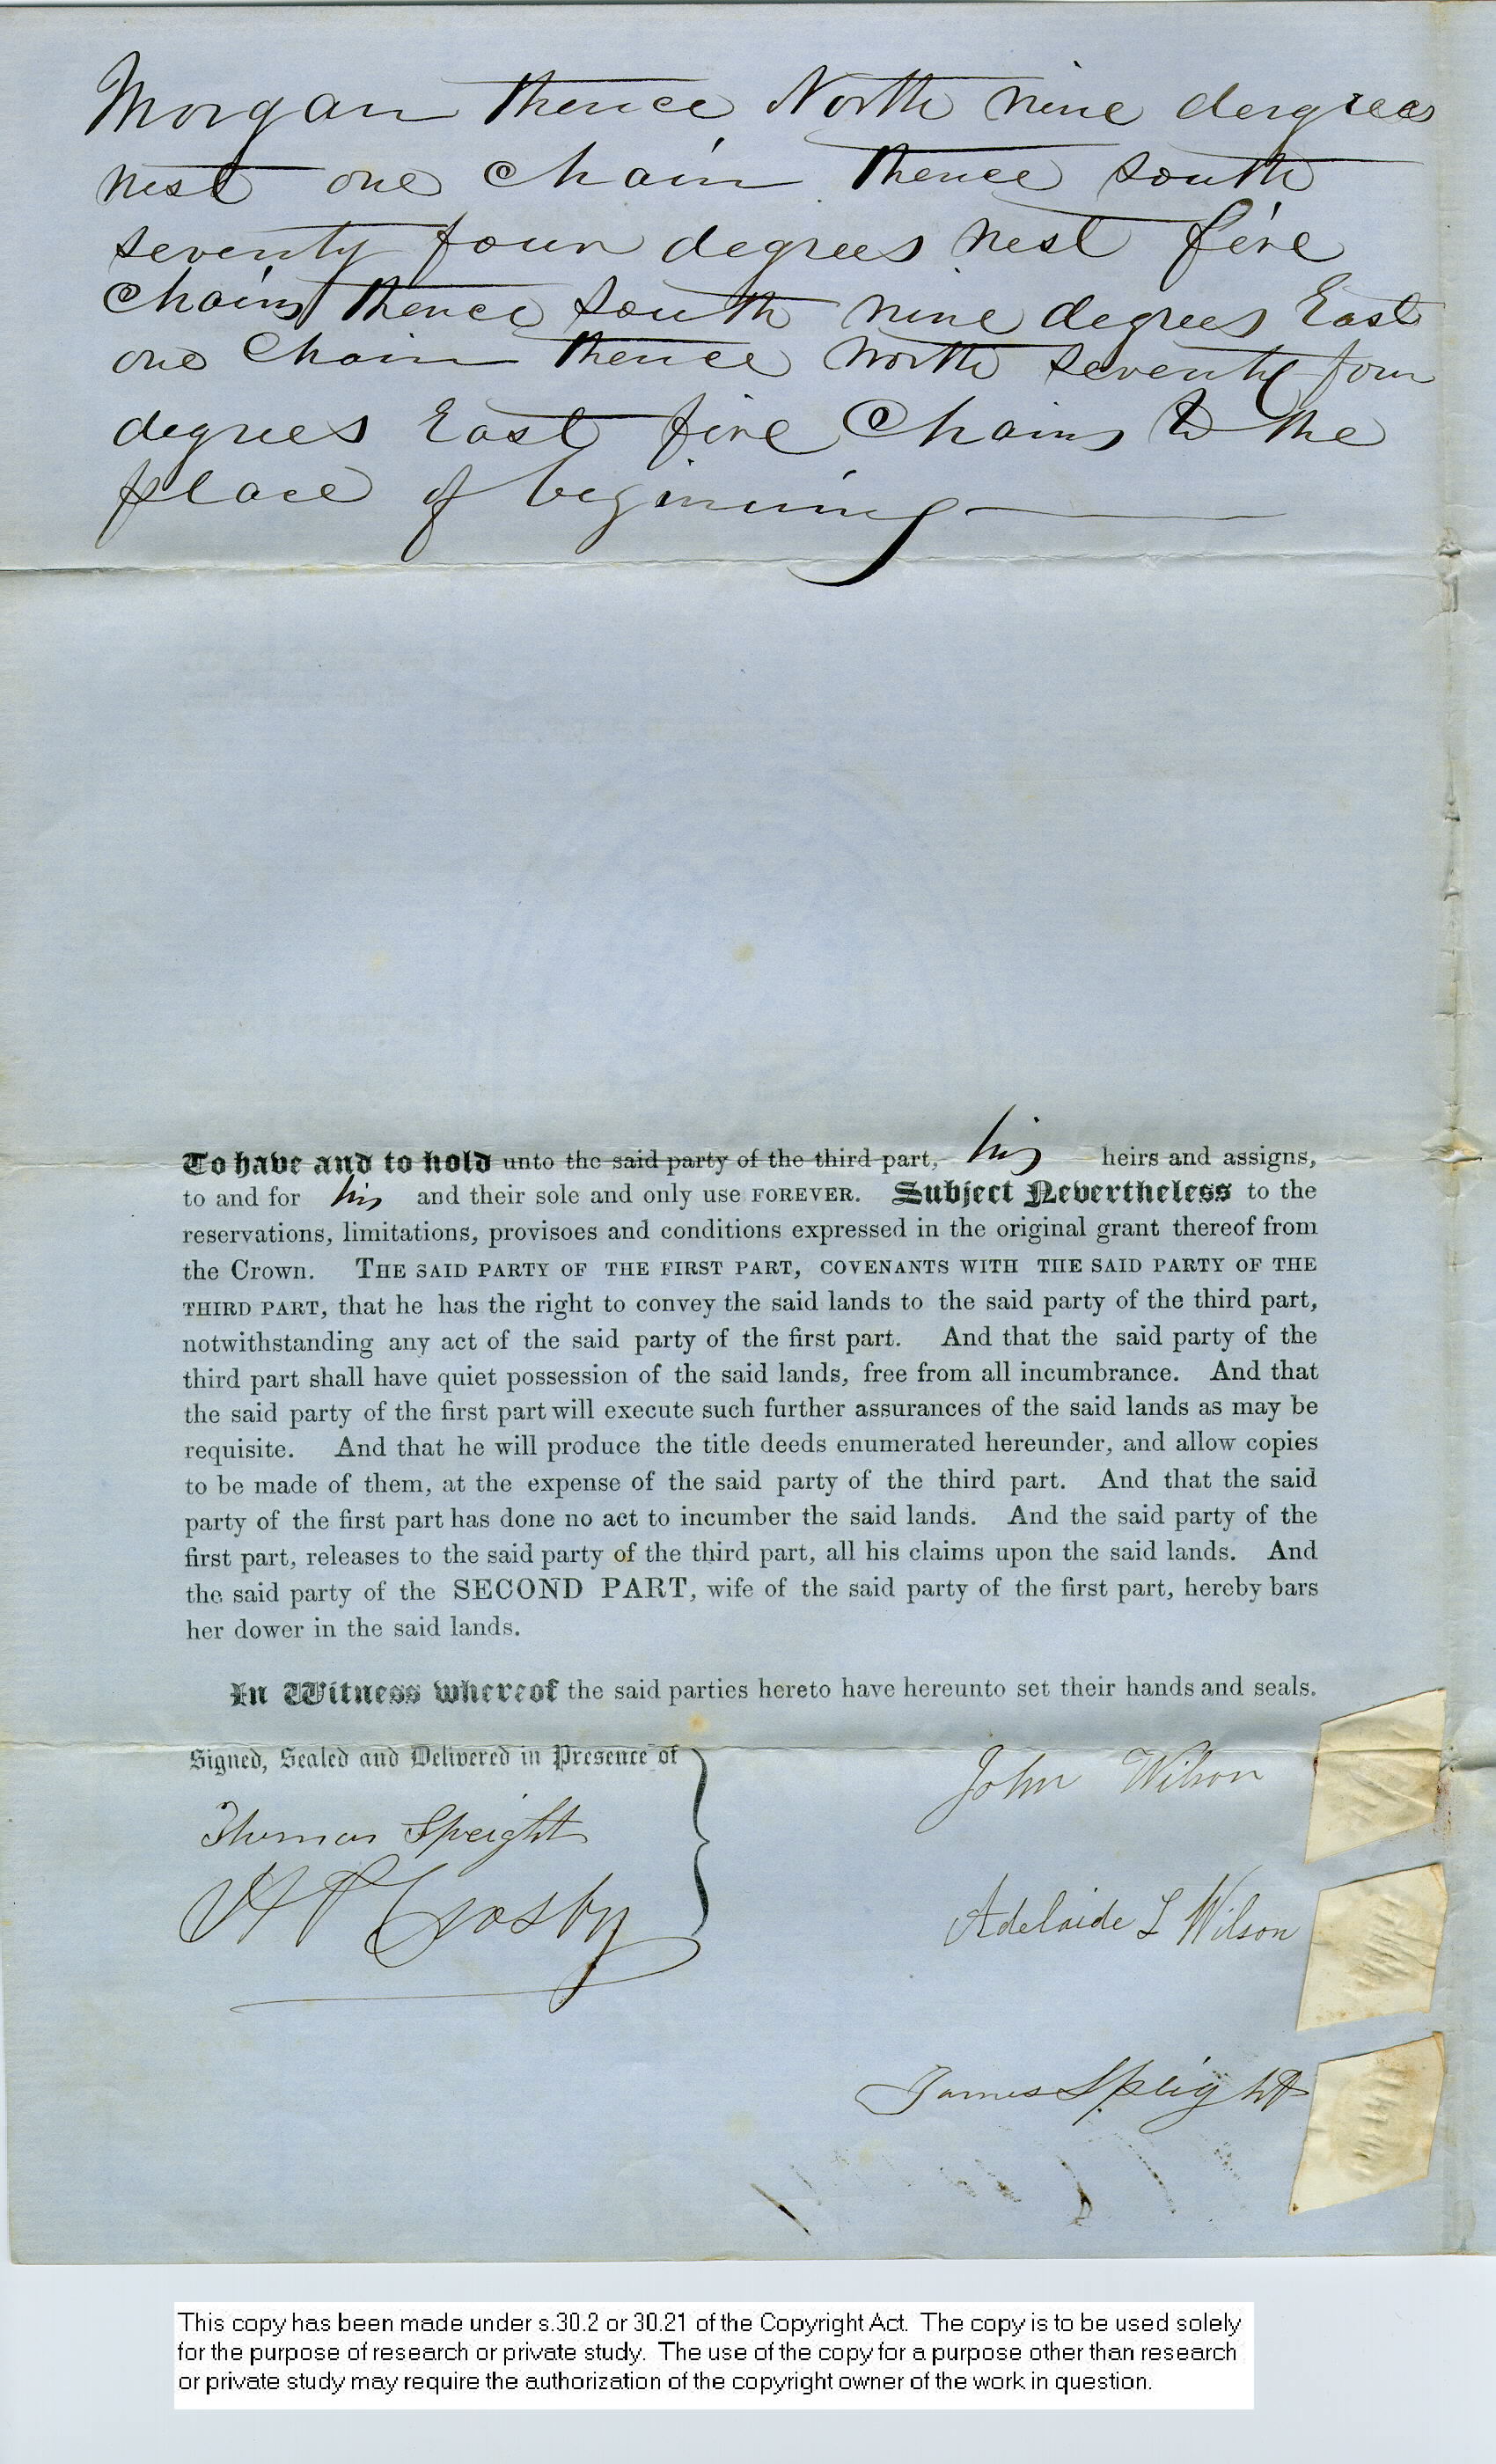 Morgan thence North nine dergrees
west one chain thence south
seventy four degrees west five
chains thence south nine degrees East
one Chain thence North seventy four
degrees East five Chains to the
place of beginning
To have and to hold unto the said party of the third part, his heirs and assigns,
to and for his and their sole and only use FOREVER. Subject Nevertheless to the
reservations, limitations, provisoes and conditions expressed in the original grant thereof from
the Crown. THE SAID PARTY OF THE FIRST PART, COVENANTS WITH THE SAID PARTY OF THE
THIRD PART, that he has the right to convey the said lands to the said party of the third part,
notwithstanding any act of the said party of the first part. And that the said party of the
third part shall have quiet possession of the said lands, free from all incumbrance. And that
the said party of the first part will execute such further assurances of the said lands as may be
requisite. And that he will produce the title deeds enumerated hereunder, and allow copies
to be made of them, at the expense of the said party of the third part. And that the said
party of the first part has done no act to incumber the said lands. And the said party of the
first part, releases to the said party of the third part, all his claims upon the said lands. And
the said party of the SECOND PART, wife of the said party of the first part, hereby bars
her dower in the said lands.
In Witness whereof the said parties hereto have hereunto set their hands and seals.
Signed, Sealed and Delivered in Presence of
John Wilson
Thomas Speight
H P Crosby
Adelaide L Wilson
James Speight
This copy has been made under s.30.2 or 30.21 of the Copyright Act. The copy is to be used solely
for the purpose of research or private study. The use of the copy for a purpose other than research
or private study may require the authorization of the copyright owner of the work in question.